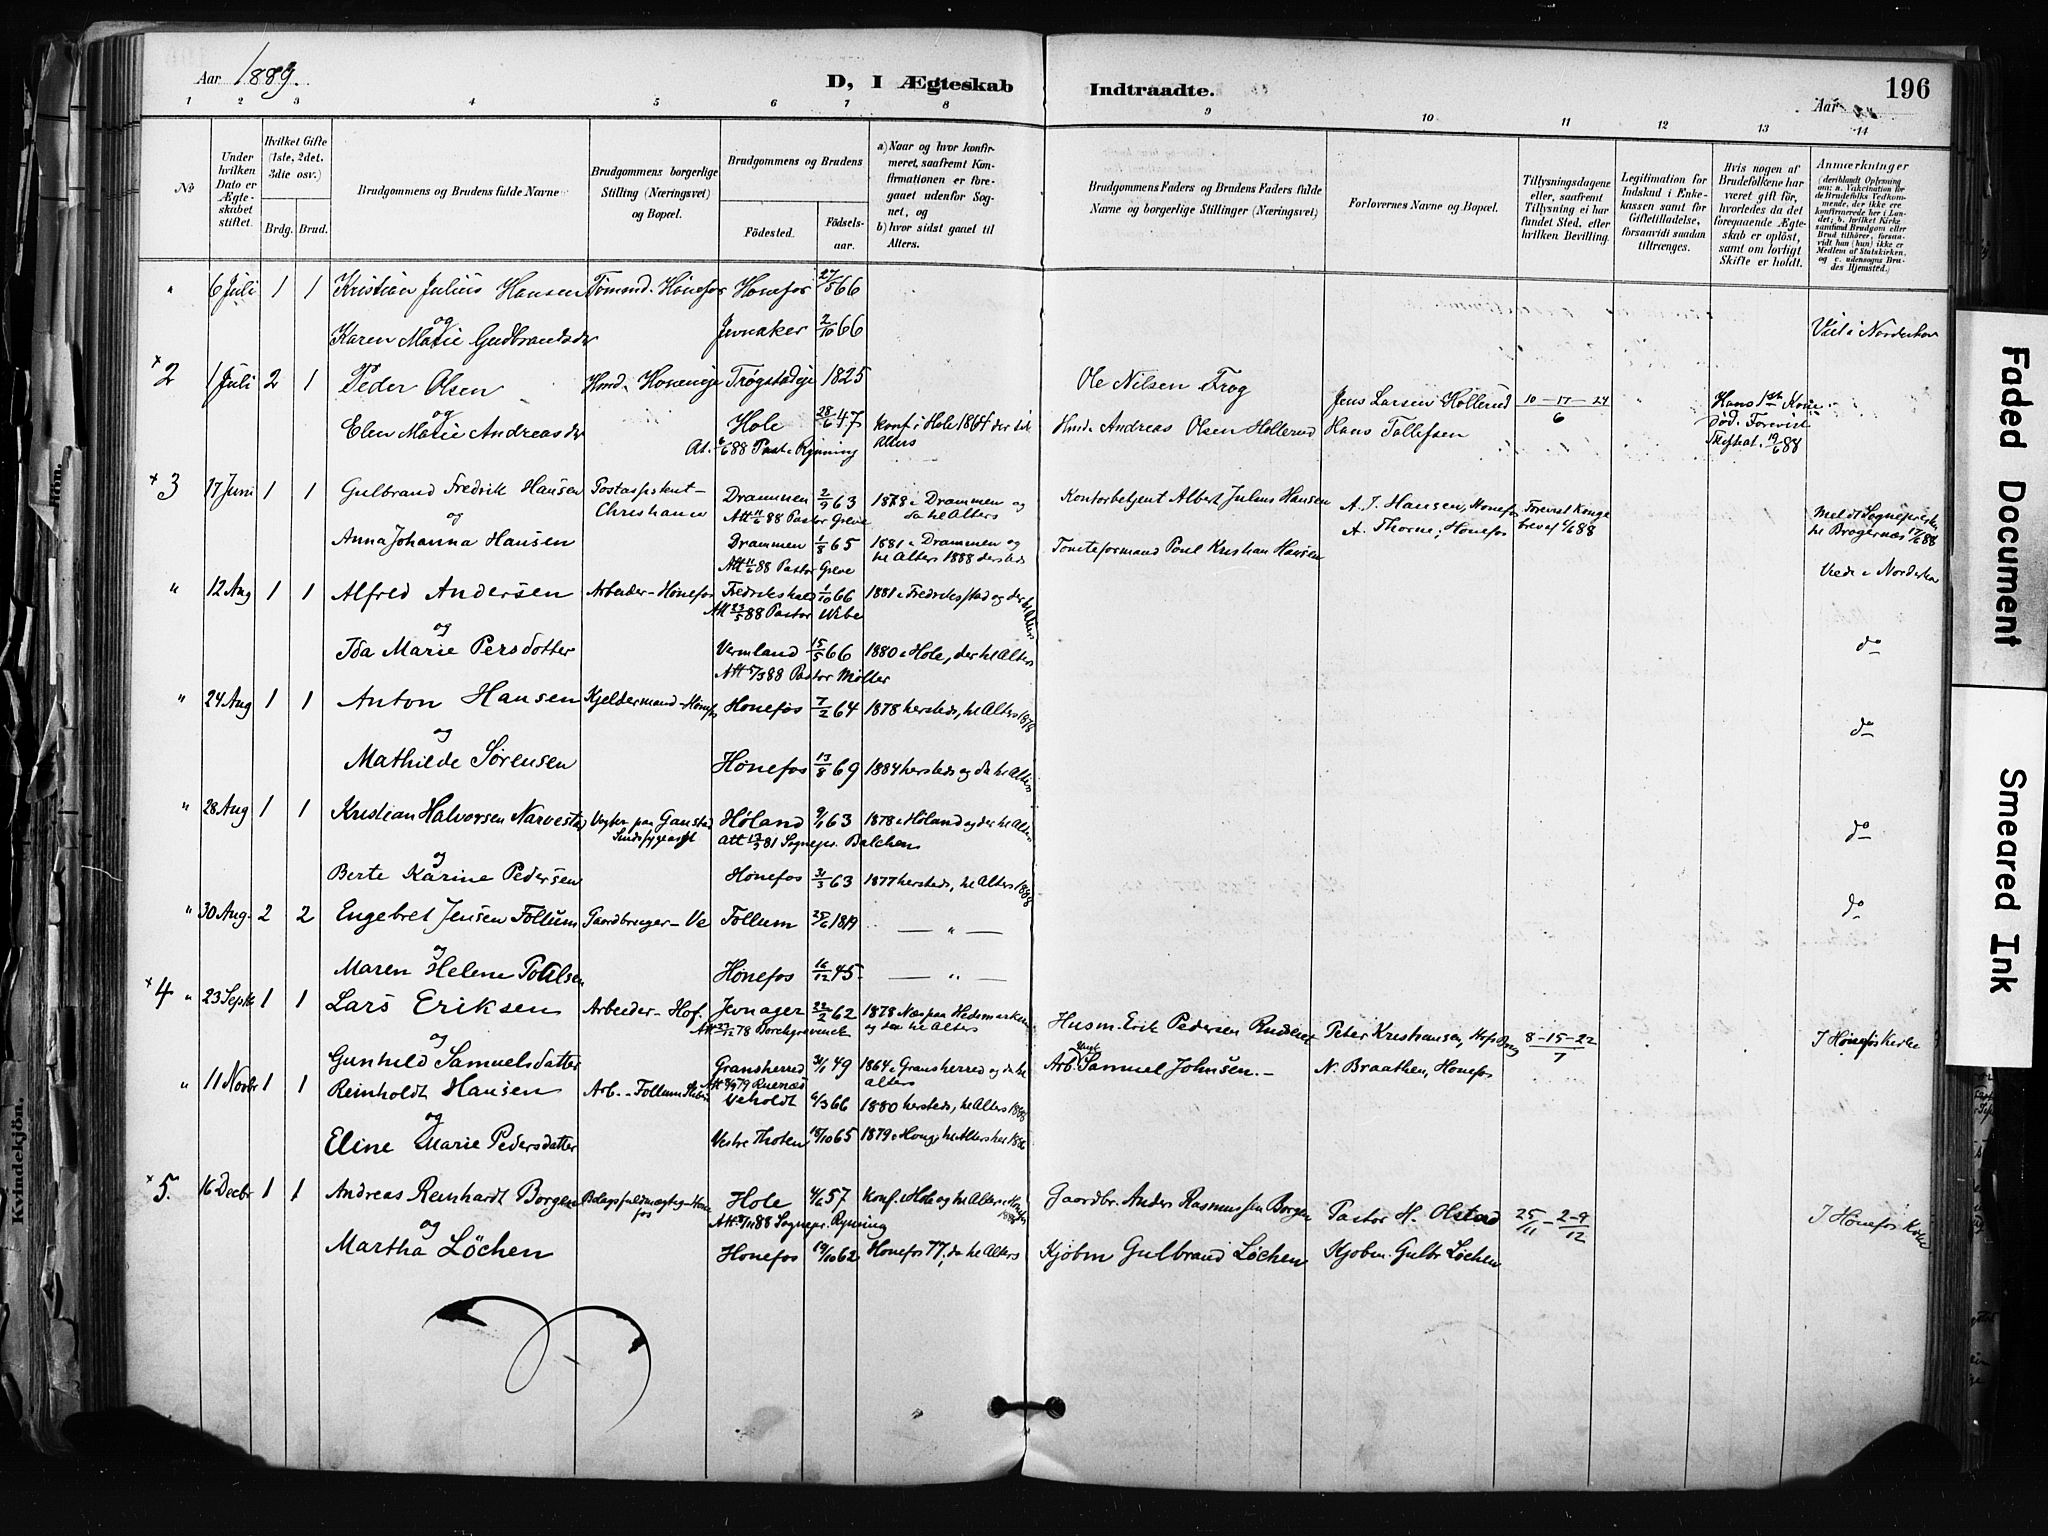 Aar 1889.
D, I Ægteskab Indtraadte.
196
Aar
1 2 3 4 5 6 7 8 9 10 11 12 13 14
No
Under hvilken Dato er Ægteskabet stiftet.
Hvilket Gifte (1ste, 2det, 3die osv.)
Brdg. Brud.
Brudgommens og Brudens fulde Navne
Brudgommens borgerlige Stilling (Næringsvei) og Bopæl.
Brudgommens og Brudens
Fødested. Fødselsaar.
a) Naar og hvor konfirmeret, saafremt Konfirmationen er foregaaet udenfor Sognet, og
b) hvor sidst gaaet til Alters.
Brudgommens Faders og Brudens Faders fulde Navne og borgerlige Stillinger (Næringsvei)
Forlovernes Navne og Bopæl.
Tillysningsdagene eller, saafremt Tillysning ei har fundet Sted, efter hvilken Bevilling.
Legitimation for Indskud i Enkekassen samt for Giftetilladelse, forsaavidt saadan tiltrænges.
Hvis nogen af Brudefolkene har været gift før, hvorledes da det foregaaende Ægteskab er opløst, samt om lovligt Skifte er holdt.
Anmærkninger (deriblandt Oplysning om: a. Vakcination for de Brudefolks Vedkommende, der ikke ere konfirmerede her i Landet; b. hvilket Kirkesamfund Brudgom eller Brud tilhører, forsaavidt han (hun) ikke er Medlem af Statskirken, og c. udensogns Brudes Hjemsted.)
" 6 Juli 1 1 Kristian Julius Hansen Tømmd. Hønefos Honefos 27/5 66
og
Karen Marie Gudbrandsdr Jevnaker 2/10 66 Viet i Norderhov
+2 1 Juli 2 1 Peder Olsen Trøgstadeje 1825 Ole Nilsen Frog Jens Larsen Hollerud 10 - 17 - 24 / 6 Hans 1ste Kone død. Forevist Skifteat. 19/6 88
og
Elen Marie Andreasdr Hole 28/6 47 Konf. i Hole 1864 der til Alters Hmd. Andreas Olsen Hollerud Hans Tollefsen
At. 6/6 88 Past. Ryning
+3 17 Juni 1 1 Gulbrand Fredrik Hansen Postassistent - Christiania Drammen 2/9 63 1878 i Drammen og da til Alters Kontorbetjent Albert Julius Hansen A. J. Hansen, Honefos Forevist Kongebrev af 1/6 88 Meldt Sognepresten til Bragernæs 17/6 88
Att 11/6 88 Pastor Greve
og
Anna Johanna Hansen Drammen 1/8 65 1881 i Drammen og til Alters 1888 dersteds Tomteformand Poul Kristian Hansen A. Thorne, Honefos
Att 11/6 88 Pastor Greve
" 12 Aug 1 1 Alfred Andersen Arbeider - Hönefos Fredrikshald 1/10 66 1881 i Fredriksstad og der til Alters Viede i Norderhov
Att 23/5 88 Pastor Wibe
og
Ida Marie Persdotter Vermland 15/5 66 1880 i Hole, der til Alters do
Att 5/3 88 Pastor Møller
" 24 Aug 1 1 Anton Hansen Kjeldermand - Hönefos Honefos 7/2 64 1878 hersteds, til Alters 1878 do
og
Mathilde Sørensen Hønefos 13/8 69 1884 hersteds og da til Alters
" 28 Aug 1 1 Kristian Halvorsen Narvestad Vogter paa Gaustad Sindssygeasyl Høland 9/1 63 1878 i Høland og der til Alters do
att 13/5 81 Sognepr. Balchen
og
Berte Karine Pedersen Hønefos 31/3 63 1877 hersteds, til Alters 1888
" 30 Aug. 2 2 Engebret Jensen Follum Gaardbruger - Ve Follum 25/6 1819 — " — do
og
Maren Helene Poulsen Hønefos 16/12 45 — " —
+4 " 23 Septb 1 1 Lars Eriksen Arbeider - Hof. Jevnager 22/2 62 1878 Næs paa Hedemarken og da til Alters Husm. Erik Pedersen Peter Kristiansen, 8 - 15 - 22 / 7 I Hønefos Kirke
Att 27/12 78 Borchgrevinck
og
Gunhild Samuelsdatter Gransherred 31/1 49 1864 i Gransherred og da til Alters Arb. Samuel Johnsen. - N. Braathen, Hönefos
" 11 Novbr 1 1 Reinholdt Hansen Arb. - Follum Veholdt 6/3 66 1880 hersteds, til Alters 1888
og
Eline Marie Pedersdatter Vestre Thoten 18/10 65
+5. 16 Decbr 1 1 Andreas Reinhardt Borgen Hönefos Hole 4/6 57 Konf. i Hole og til Alters i Hönefos Gaardbr. Anders Rasmussen Borgen Pastor H. Olstad 25/11 - 2-9/12 I Hönefos Kirke
Att 8/11 88 Sognepr. Ryning
og
Martha Löchen Honefos 19/10 62 Honefos 77, da til Alters Kjöbm Gulbrand Löchen Kjobm. Gulbr Löchen
Faded Document
Smeared Ink
Kvindekjøn.